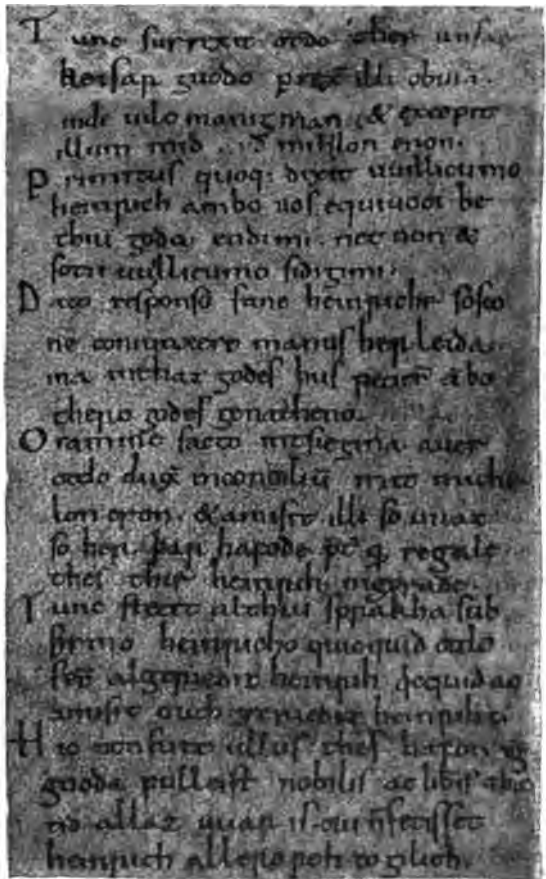 Tunc surrexit otdo ther unsar
keisar guodo prex illi obuia
inde uilo manig man & excepit
illum mid mihilon eron.
Primitus quoq; dixit uuillicumo
heinrich ambo uos equiuoci be
thiu goda endi mi. nec non &
sotii uuillicumo sidigimi.
Dato responso fane heinriche so sco
ne coniunxere manus her leida
ina inthaz godes hus petier abo
thero godes genatheno.
Oramine facto intsiegina auer
otdo dux in conciliu mit miche
lon eron. & amisit illi so uuaz
so her hafode pt q regale
thes thir heinrich nigerade.
Tunc stetit althiu sprakha sub
firmo heinricho quicquid otdo
fec algeriediz heinrich quicquid ac
amisit ouch geriediz heinrihc
Hic non fuit ullus thes hafon ig
guoda fulleist nobilis ac libis thaz
tid allaz uuar is. cui n fecisset
heinrich allero reh to gilich.